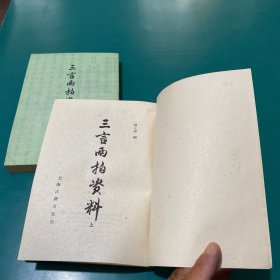 三言两拍资
谭正璧 编
三言两拍资料
上
上海古籍出版社